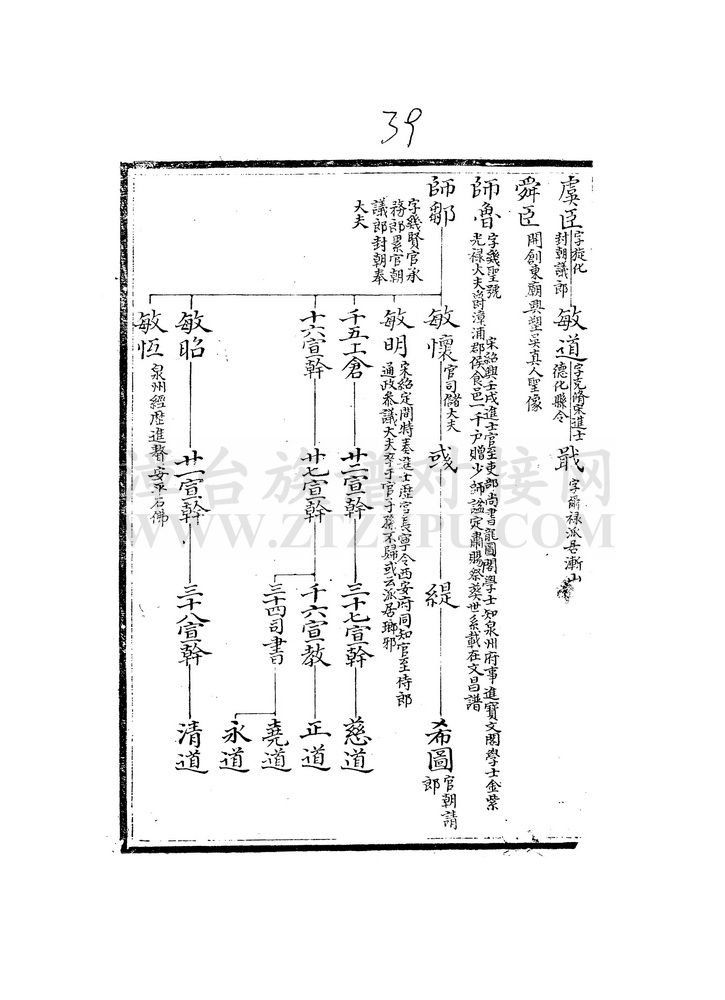 39
虞臣
字旋化
封朝議郎
敏道
字克隆宋進士
德化縣令
戩
字爾祿派居漸山
舜臣
開創東廟興塑吳真人聖像
師魯
字幾聖號
宋紹興壬戌進士官至吏部尚書龍圖閣學士知泉州府事進寶文閣學士金紫
光祿大夫爵漳浦郡侯食邑一千戶贈少師諡定肅賜祭葬世系載在文昌譜
師鄒
字幾賢官承
務郎累官朝
議郎封朝奉
大夫
敏懷
官司儲大夫
彧
緹
希圖
官朝請
郎
敏明
宋紹定間特奏進士歷官長寧令西安府同知官至侍郎
通政參議大夫卒于官子孫不歸或云派居瑯邪
千五工倉
廿二宣幹
三十七宣幹
慈道
十六宣幹
廿七宣幹
千六宣教
正道
三十四司書
堯道
永道
敏昭
廿一宣幹
三十八宣幹
清道
敏恆
泉州經歷進贅安平石佛
漳台族譜对接网
WWW.ZTZUPU.COM